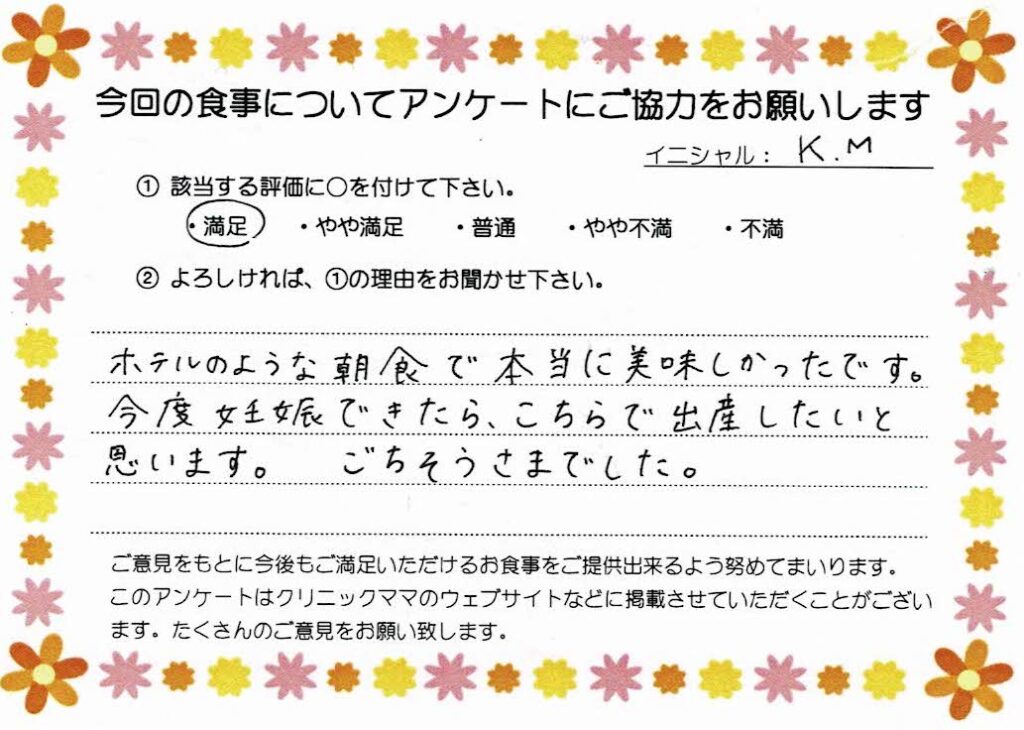 今回の食事についてアンケートにご協力をお願いします
イニシャル： K.M
① 該当する評価に○を付けて下さい。
・満足 ・やや満足 ・普通 ・やや不満 ・不満
② よろしければ、①の理由をお聞かせ下さい。
ホテルのような朝食で本当に美味しかったです。
今度妊娠できたら、こちらで出産したいと
思います。 ごちそうさまでした。
ご意見をもとに今後もご満足いただけるお食事をご提供出来るよう努めてまいります。
このアンケートはクリニックママのウェブサイトなどに掲載させていただくことがござい
ます。たくさんのご意見をお願い致します。